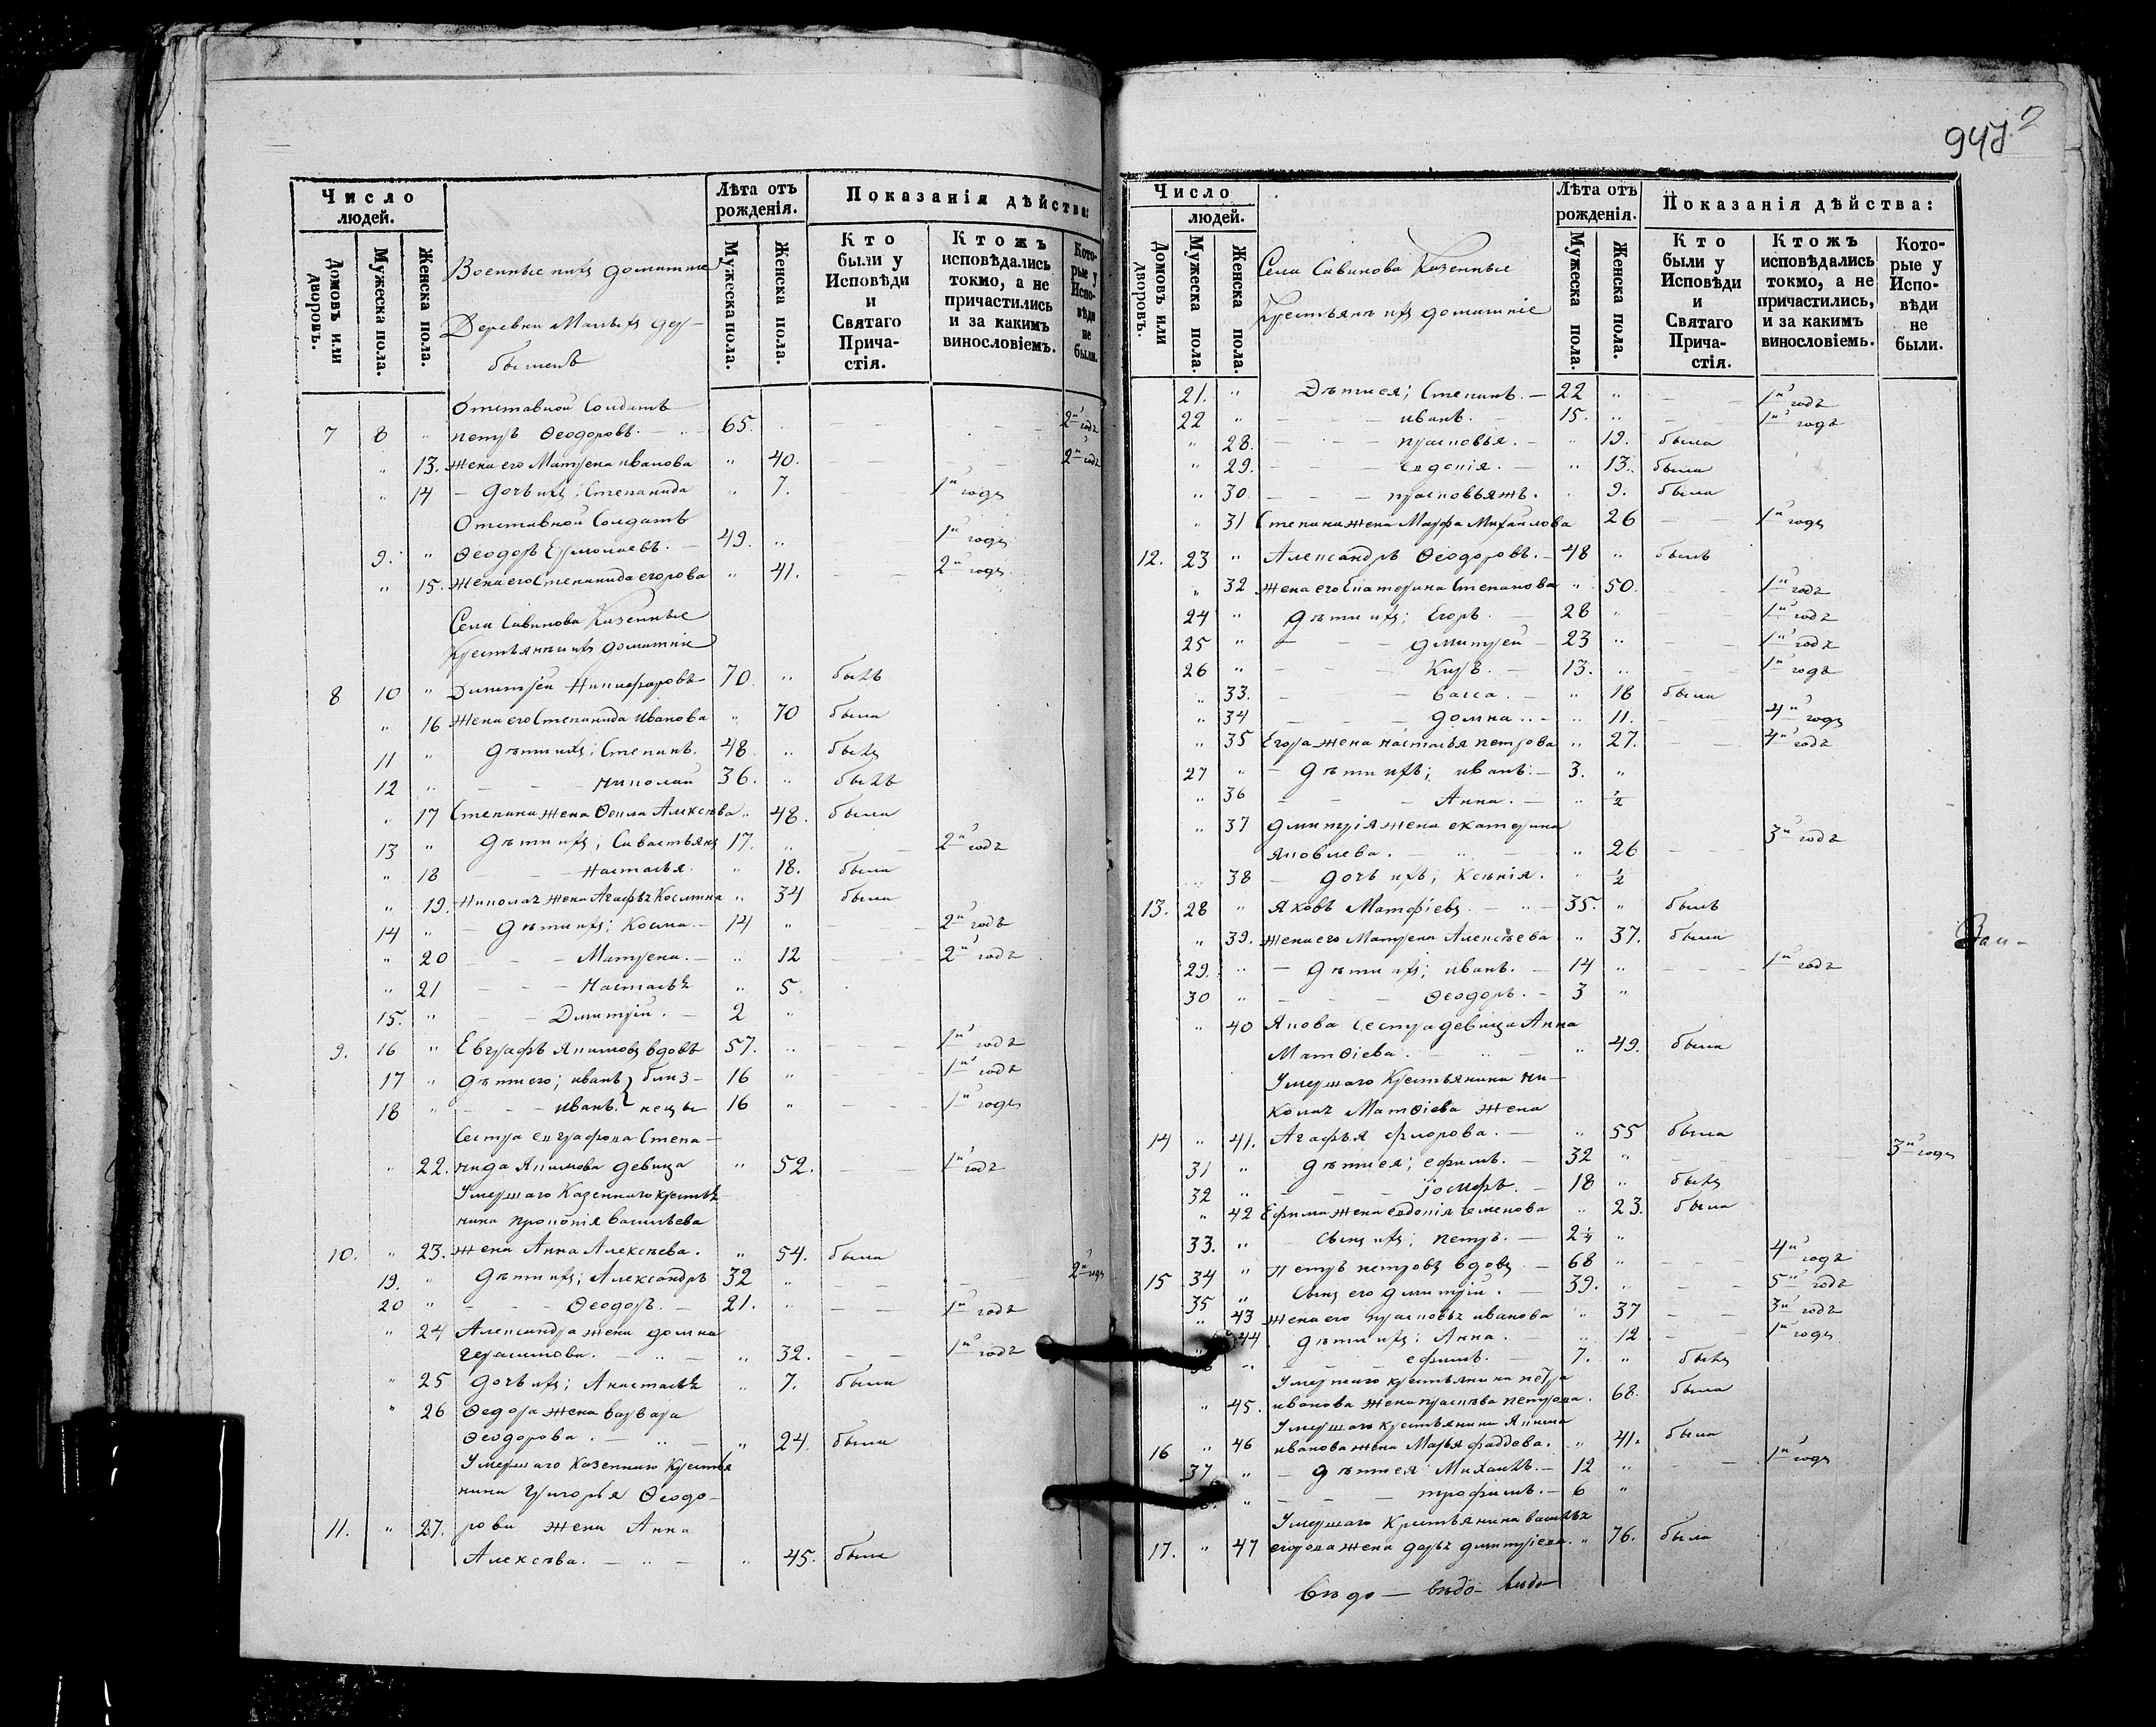 947
2
Число людей.
Лѣта отъ рожденія.
Показанія дѣйства:
Домовъ или дворовъ.
Мужеска пола.
Женска пола.
Военные и ихъ домашние
Деревни Малыхъ Дер-
бышевъ
Мужеска пола.
Женска пола.
Кто были у Исповѣди и Святаго Прича-стія.
Ктожъ исповѣдались токмо, а не причастились и за какимъ винословіемъ.
Кото-рые у Испо-вѣди не были.
Отставной Солдатъ
7 8 " Петръ Ѳеодоровъ. 65. " 2й годъ
" 13. Жена его Матрена Иванова " 40. 2й годъ
" 14 Дочь ихъ; Степанида " 7. 1й годъ
Отставной Солдатъ 1й годъ
9. " Ѳеодоръ Ермолаевъ. 49. "
" 15. Жена его Степанида Егорова " 41. 2й годъ
Села Савинова Казенные
Крестьяне и ихъ домашніе
8 10 " Димитрій Никифоровъ 70. " былъ
" 16 Жена его Степанида Иванова " 70 была
11 " Дѣти ихъ; Степанъ. 48. " былъ
12 " Николай 36. " былъ
" 17 Степана жена Ѳекла Алексѣева " 48. была
13 " Дѣти ихъ; Савастьянъ 17. " 2й годъ
" 18 Настасья. " 18. была
" 19. Николая жена Агафья Космина " 34 была
14 " Дѣти ихъ; Косма. 14 " 2й годъ
" 20 Матрена. " 12 2й годъ
" 21 Настасья " 5.
15. " Димитрій. 2 "
9. 16 " Евграфъ Якимовъ вдовъ 57. " 1й годъ
17 " Дѣти его; Иванъ } близ- 16 " 1й годъ
18 " Иванъ. } нецы 16 " 1й годъ
Сестра Евграфова Степа-
" 22. нида Якимова девица " 52. 1й годъ
Умершаго Казеннаго крестья
нина Прокопія Васильева
10. " 23. жена Анна Алексѣева. " 54. была
19. " Дѣти ихъ; Александръ 32 " 2й годъ
20 " Ѳеодоръ. 21. " 1й годъ
" 24 Александра жена Домна
Герасимова. " 32. 1й годъ
" 25 Дочь ихъ; Анастасья " 7. была
" 26 Ѳедора жена Варвара
Ѳеодорова. " 24. была
Умершаго Казеннаго Крестья
нина Григорья Ѳеодо-
11. " 27. рова жена Анна
Алексѣва. " 45. была
Число людей.
Лѣта отъ рожденія.
Показанія дѣйства:
Домовъ или дворовъ.
Мужеска пола.
Женска пола.
Села Савинова Казенные
Крестьяне и ихъ домашніе
Мужеска пола.
Женска пола.
Кто были у Исповѣди и Святаго Прича-стія.
Ктожъ исповѣдались токмо, а не причастились, и за какимъ винословіемъ.
Кото-рые у Испо-вѣди не были.
21. " Дѣти ея; Степанъ. 22 " 1й годъ
22 " Иванъ. 15. " 1й годъ
" 28. Прасковья. " 19. была
" 29. Евдокія. " 13. была
" 30 Прасковья жъ. " 9. была
" 31 Степана жена Марфа Михайлова 26 1й годъ
12. 23 " Александръ Ѳеодоровъ. 48 " былъ
" 32 Жена его Екатерина Степанова " 50. 1й годъ
24 " Дѣти ихъ; Егоръ. 28 " 1й годъ
25 " Дмитрей 23 " 1й годъ
26 " Киръ. 13. " 1й годъ
" 33. Васса. " 18 была
" 34 Домна. " 11. 4й годъ
" 35 Егора жена Настасья Петрова " 27. 4й годъ
27 " Дѣти ихъ; Иванъ. 3. "
" 36 Анна. " ½
" 37 Дмитрія жена Екатерина
Яковлева. " 26 3й годъ
38 Дочь ихъ; Ксѣнія. " ½
13. 28 " Яковъ Матфіевъ. 35. " былъ
" 39. Жена его Матрена Алексѣева " 37. была
29. " Дѣти ихъ; Иванъ. 14 " 1й годъ
30 " Ѳеодоръ. 3 "
" 40 Якова сестра девица Анна
Матѳіева. " 49. была
Умершаго Крестьянина Ни-
колая Матѳіева жена
14 " 41. Агафья Фролова. " 55 была
31 " Дѣти ея; Ефимъ. 32 " 3й годъ
32 " Іосифъ. 18 " былъ
" 42 Ефима жена Евдокія Семенова " 23. была
33. " Сынъ ихъ; Петръ. 2¼ "
15 34 " Петръ Петровъ вдовъ. 68 " 4й годъ
35 " Сынъ его Димитрій. 39. " 5й годъ
" 43 Жена его Прасковья Иванова " 37 3й годъ
" 44. Дѣти ихъ; Анна. " 12 1й годъ
36 " Ефимъ. 7. " былъ
Умершаго крестьянина Петра
" 45. Иванова жена Прасковья Петрова. 68. была
Умершаго крестьянина Якима
16 " 46 Иванова жена Марья Фаддева. " 41. была
37 " Дѣти ея Михаилъ. 12 " 1й годъ
" Трофимъ. 6 "
Умершаго Крестьянина Василья
17. " 47 Егорова жена Дарья Димитріева. " 76. была
Вѣдо — вѣдо — вѣдо